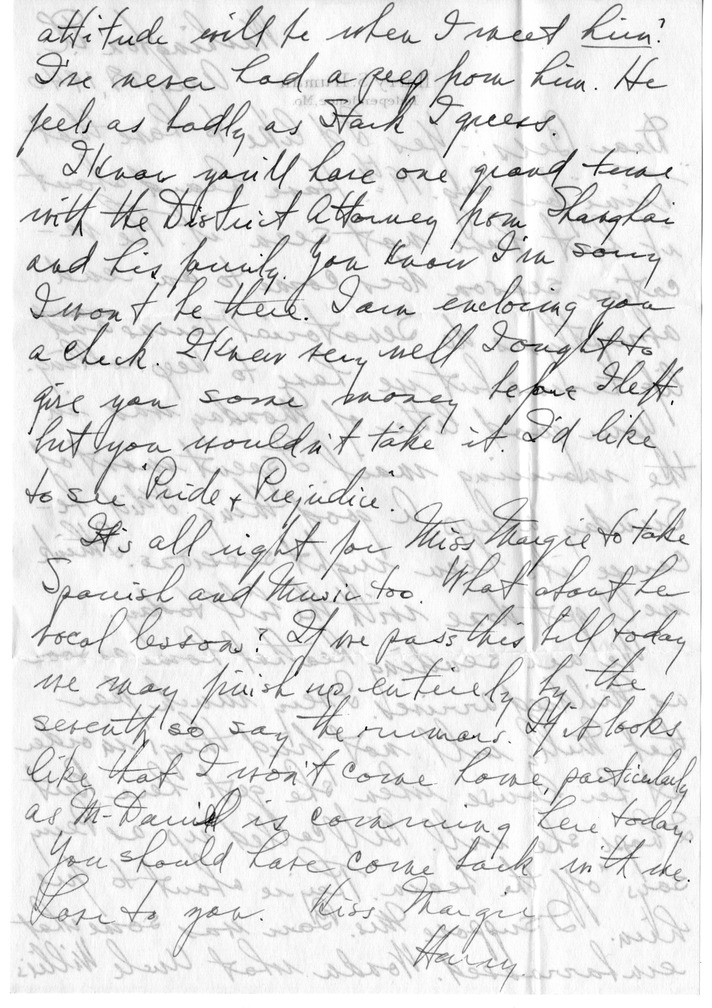 attitude will be when I meet him?
I've never had a peep from him. He
feels as badly as Stark I guess.
I know you'll have one grand time
with the District Attorney from Shanghai
and his family. You know I'm sorry
I won't be there. I am encloring you
a check. I knew very well I ought to
give you some money before I left.
but you wouldn't take it. I'd like
to see "Pride & Prejudice".
It's all right for Miss Margie to take
Spanish and Music too. What about her
vocal lesson? If we pass this bill today
we may finish up entirely by the
seventh, so say the rumors. If it looks
like that I won't come home, particularly
as McDaniel is comming here today.
You should have come back with me.
Love to you. Kiss Margie
Harry.